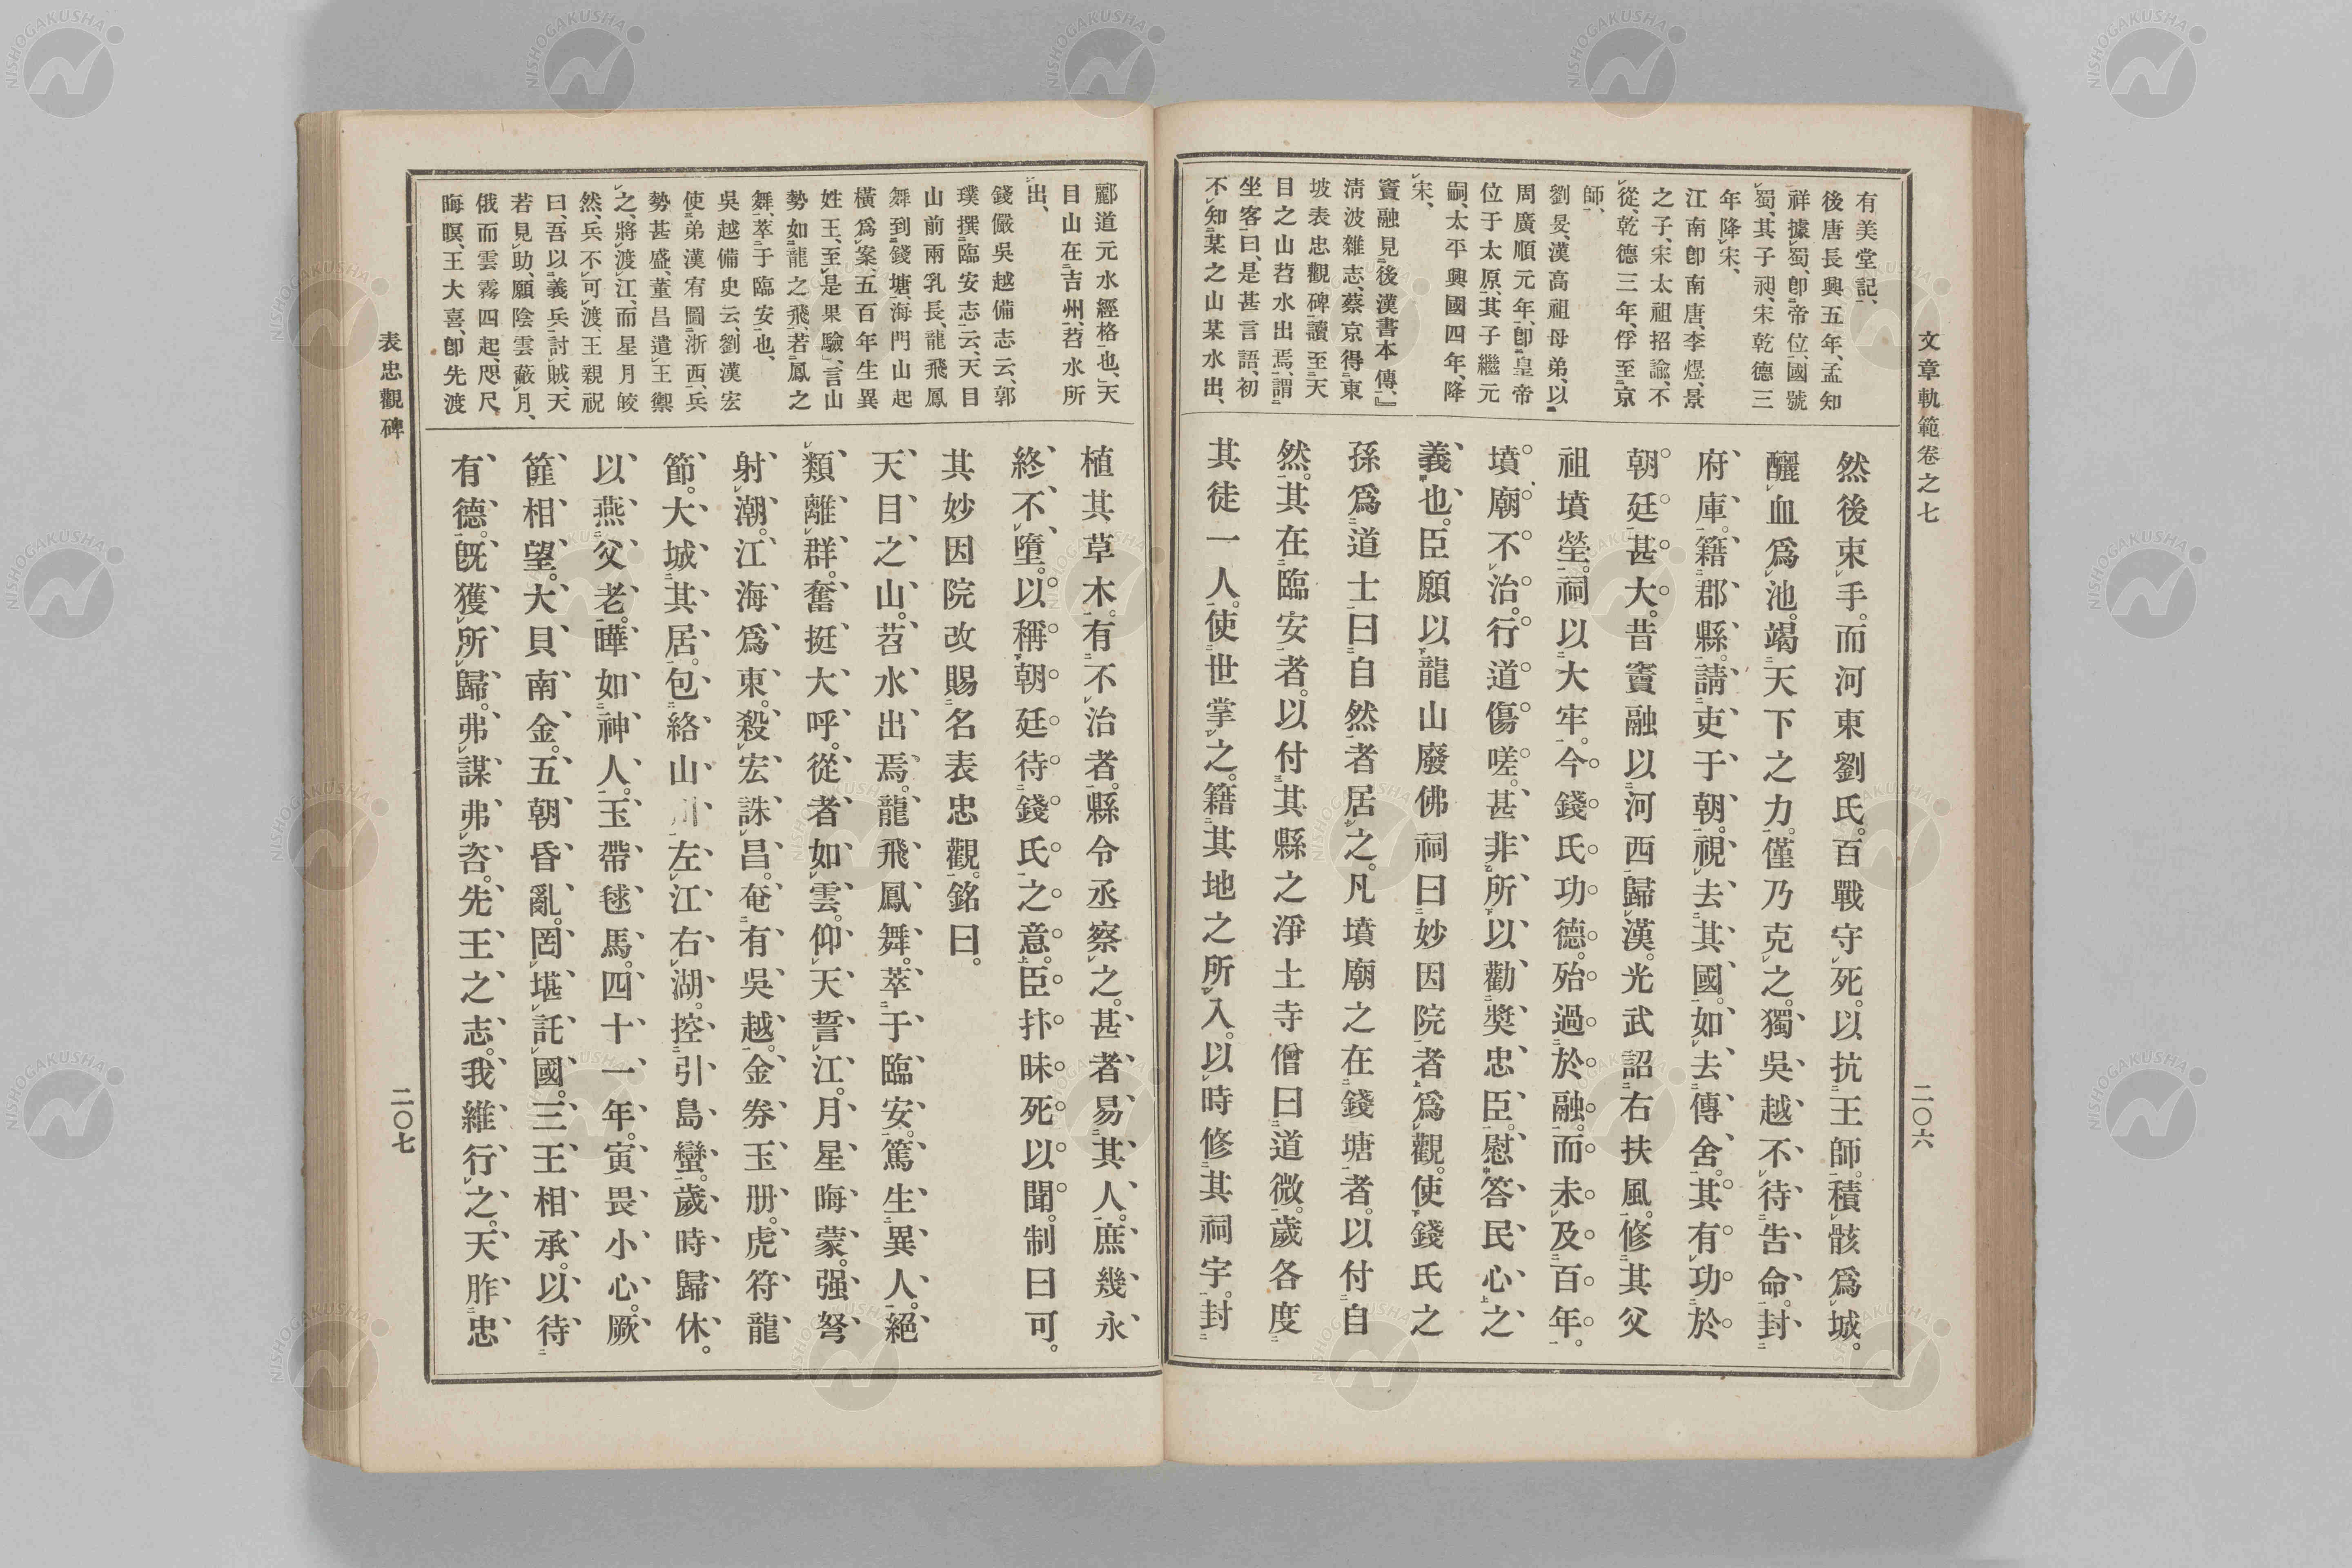 文章軌範卷之七
二〇六
有美堂記、
後唐長興五年、孟知
祥據蜀、卽帝位、國號
蜀、其子昶、宋乾德三
年降宋、
江南卽南唐、李煜、景
之子、宋太祖招諭、不
從、乾德三年、俘至京
師、
劉旻、漢高祖母弟、以
周廣順元年、卽皇帝
位于太原、其子繼元
嗣、太平興國四年、降
宋、
竇融見後漢書本傳、』
淸波雜志、蔡京得東
坡表忠觀碑讀至天
目之山苕水出焉、謂
坐客曰、是甚言語、初
不知某之山某水出、
然後束手。而河東劉氏。百戰守死。以抗王師。積骸爲城。
釃血爲池。竭天下之力。僅乃克之。獨吳越不待告命。封
府庫。籍郡縣。請吏于朝。視去其國。如去傳舍。其有功於
朝廷甚大。昔竇融以河西歸漢。光武詔右扶風。修其父
祖墳塋。祠以大牢。今錢氏功德。殆過於融。而未及百年。
墳廟不治。行道傷嗟。甚非所以勸奬忠臣。慰答民心之
義也。臣願以龍山廢佛祠曰妙因院者爲觀。使錢氏之
孫爲道士曰自然者居之。凡墳廟之在錢塘者。以付自
然。其在臨安者。以付其縣之淨土寺僧曰道微。歲各度
其徒一人。使世掌之。籍其地之所入。以時修其祠宇。封
酈道元水經格也、天
目山在吉州、苕水所
出、
錢儼吳越備志云、郭
璞撰臨安志云、天目
山前兩乳長、龍飛鳳
舞到錢塘、海門山起
橫爲案五百年生異
姓王、至是果驗』、言山
勢如龍之飛、若鳳之
舞、萃于臨安也、
吳越備史云、劉漢宏
使弟漢宥圖浙西、兵
勢甚盛、董昌遣王禦
之、將渡江、而星月皎
然、兵不可渡、王親祝
曰、吾以義兵討賊、天
若見助、願陰雲蔽月、
俄而雲霧四起、咫尺
晦瞑、王大喜、卽先渡
植其草木。有不治者。縣令丞察之。甚者易其人。庶幾永
終不墮。以稱朝廷待錢氏之意。臣抃昧死以聞。制曰可。
其妙因院改賜名表忠觀。銘曰。
天目之山。苕水出焉。龍飛鳳舞。萃于臨安。篤生異人。絕
類離群。奮挺大呼。從者如雲。仰天誓江。月星晦蒙。强弩
射潮。江海爲東。殺宏誅昌。奄有吳越。金券玉册。虎符龍
節。大城其居。包絡山川。左江右湖。控引島蠻。歲時歸休。
以燕父老。曄如神人。玉帶毬馬。四十一年。寅畏小心。厥
篚相望。大貝南金。五朝昏亂。罔堪託國。三王相承。以待
有德。旣獲所歸。弗謀弗咨。先王之志。我維行之。天胙忠
表忠觀碑
二〇七